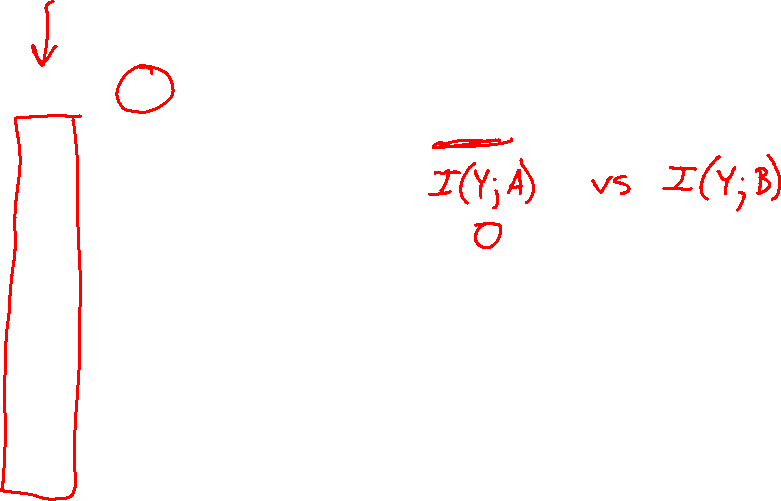 I(Y;A) vs I(Y;B)
O